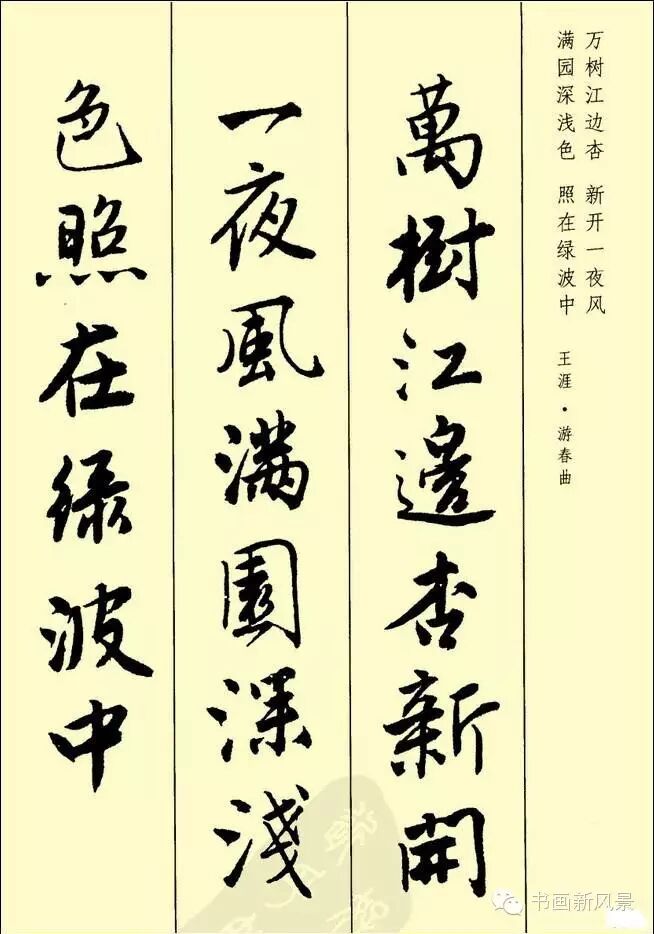 万树江边杏 新开一夜风
满园深浅色 照在绿波中
王涯·游春曲
萬樹江邊杏新開
一夜風滿園深淺
色照在緑波中
书画新风景